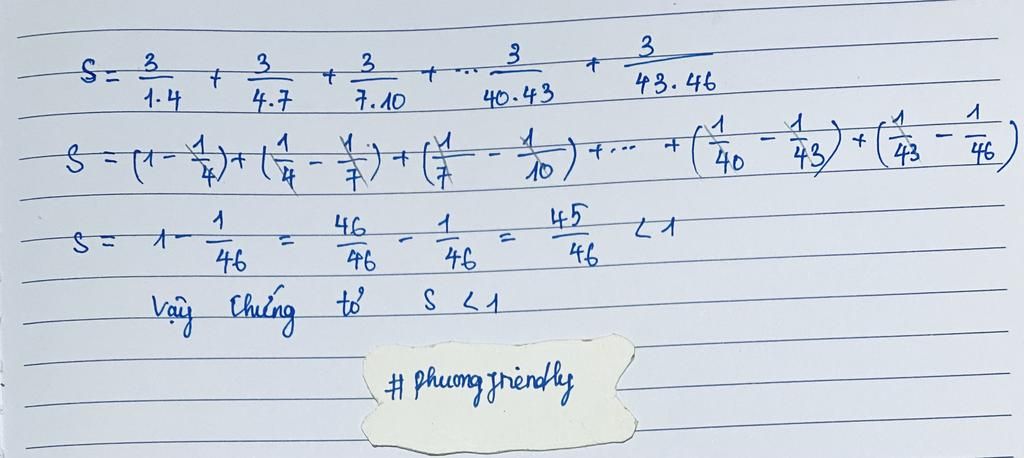 S = 3/1.4 + 3/4.7 + 3/7.10 + ... 3/40.43 + 3/43.46
S = (1 - 1/4) + (1/4 - 1/7) + (1/7 - 1/10) + ... + (1/40 - 1/43) + (1/43 - 1/46)
S = 1 - 1/46 = 46/46 - 1/46 = 45/46 < 1
Vậy chứng tỏ S < 1
# phuongfriendly